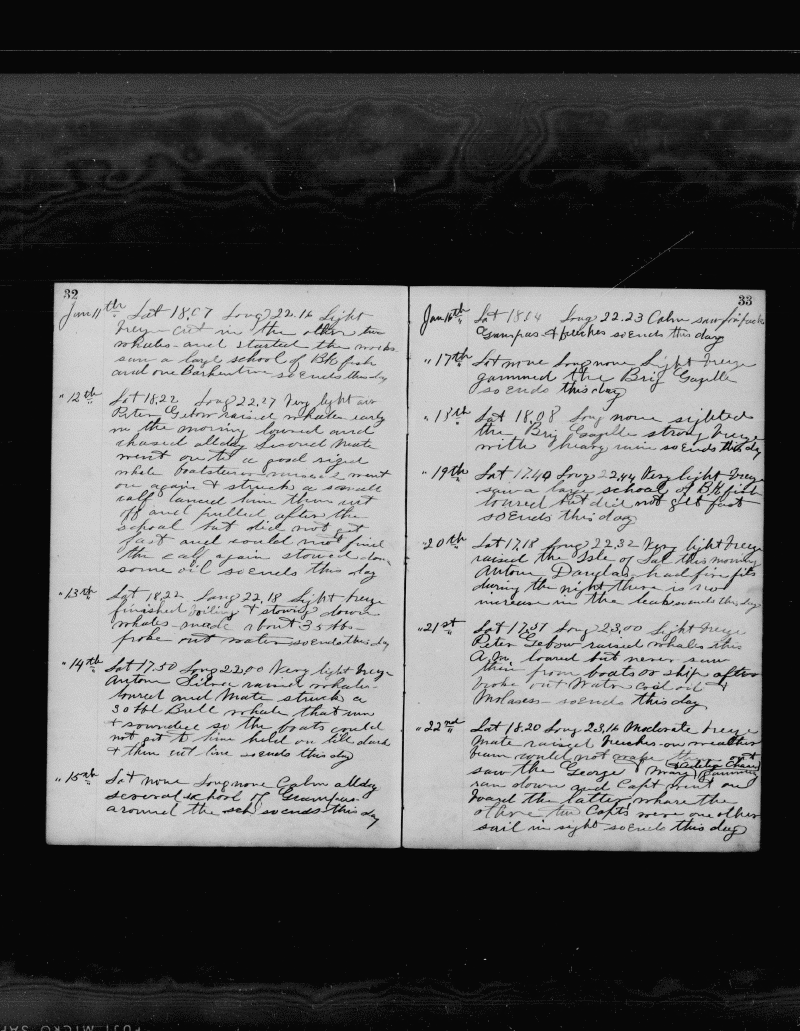 32
Jan 11th Lat 18.07 Long 22.16 Light
breze cut in the other two
whales and started the works
saw a large school of Bk fish
and one Barkentine so ends this day
" 12th Lat 18.22 Long 22.27 Very light air
Peter Gebow raised whales early
in the morning lowred and
chased all day Second Mate
went on to a good sized
whale boatsteerer missed went
on again & struck a small
calf lanced him then cut
off and pulled after the
school but did not get
fast and could not find
the calf again stowed down
some oil so ends this day
" 13th Lat 18.22 Long 22.18 Light breze
finished boiling & stowing down
whales made about 35 bbls
broke out water so ends this day
" 14th Lat 17.50 Long 22.00 Very light breze
Antone Silver raised whales
lowred and Mate struck a
30 bbl Bull whale that run
& sounded so the boats could
not get to him held on till dark
& then cut line so ends this day
" 15th Lat none Long none Calm all day
several school of Grampus
around the sch so ends this day
33
Jan 16th Lat 18.14 Long 22.23 Calm saw
Grampas & so ends this day
" 17th Lat none Long none Light breze
gammed the Brig Gazelle
so ends this day
" 18th Lat 18.08 Long none sighted
the Brig Gazelle strong breze
with heavy rain so ends this day
" 19th Lat 17.40 Long 22.44 Very light breze
saw a large school of Bk fish
lowred but did not get fast
so Ends this day
" 20th Lat 17.18 Long 22.32 Very light breze
raised the Isle of Sal this morning
Antone Douglas had five fits
during the night there is no
increase in the leak so ends this day
" 21st Lat 17.57 Long 23.00 Light breze
Peter Gebow raised whales this
A.M. lowred but never saw
them from boats or ship after
broke out Water Coal oil &
Molasses so ends this day
" 22nd Lat 18.20 Long 23.16 Moderate breze
Mate raised on weather
beam could not make them out
saw the George & Mary
run down and Capt went on
board the latter whare the
other two Capts were one other
sail in sight so Ends this day